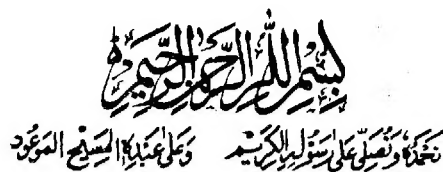 بِسْمِ اللّٰهِ الرَّحْمٰنِ الرَّحِيْمِ
نَحْمَدُهٗ وَنُصَلِّیْ عَلٰی رَسُوْلِهِ الْکَرِیْمِ وَعَلٰی عَبْدِهِ الْمَسِیْحِ الْمَوْعُوْدِ